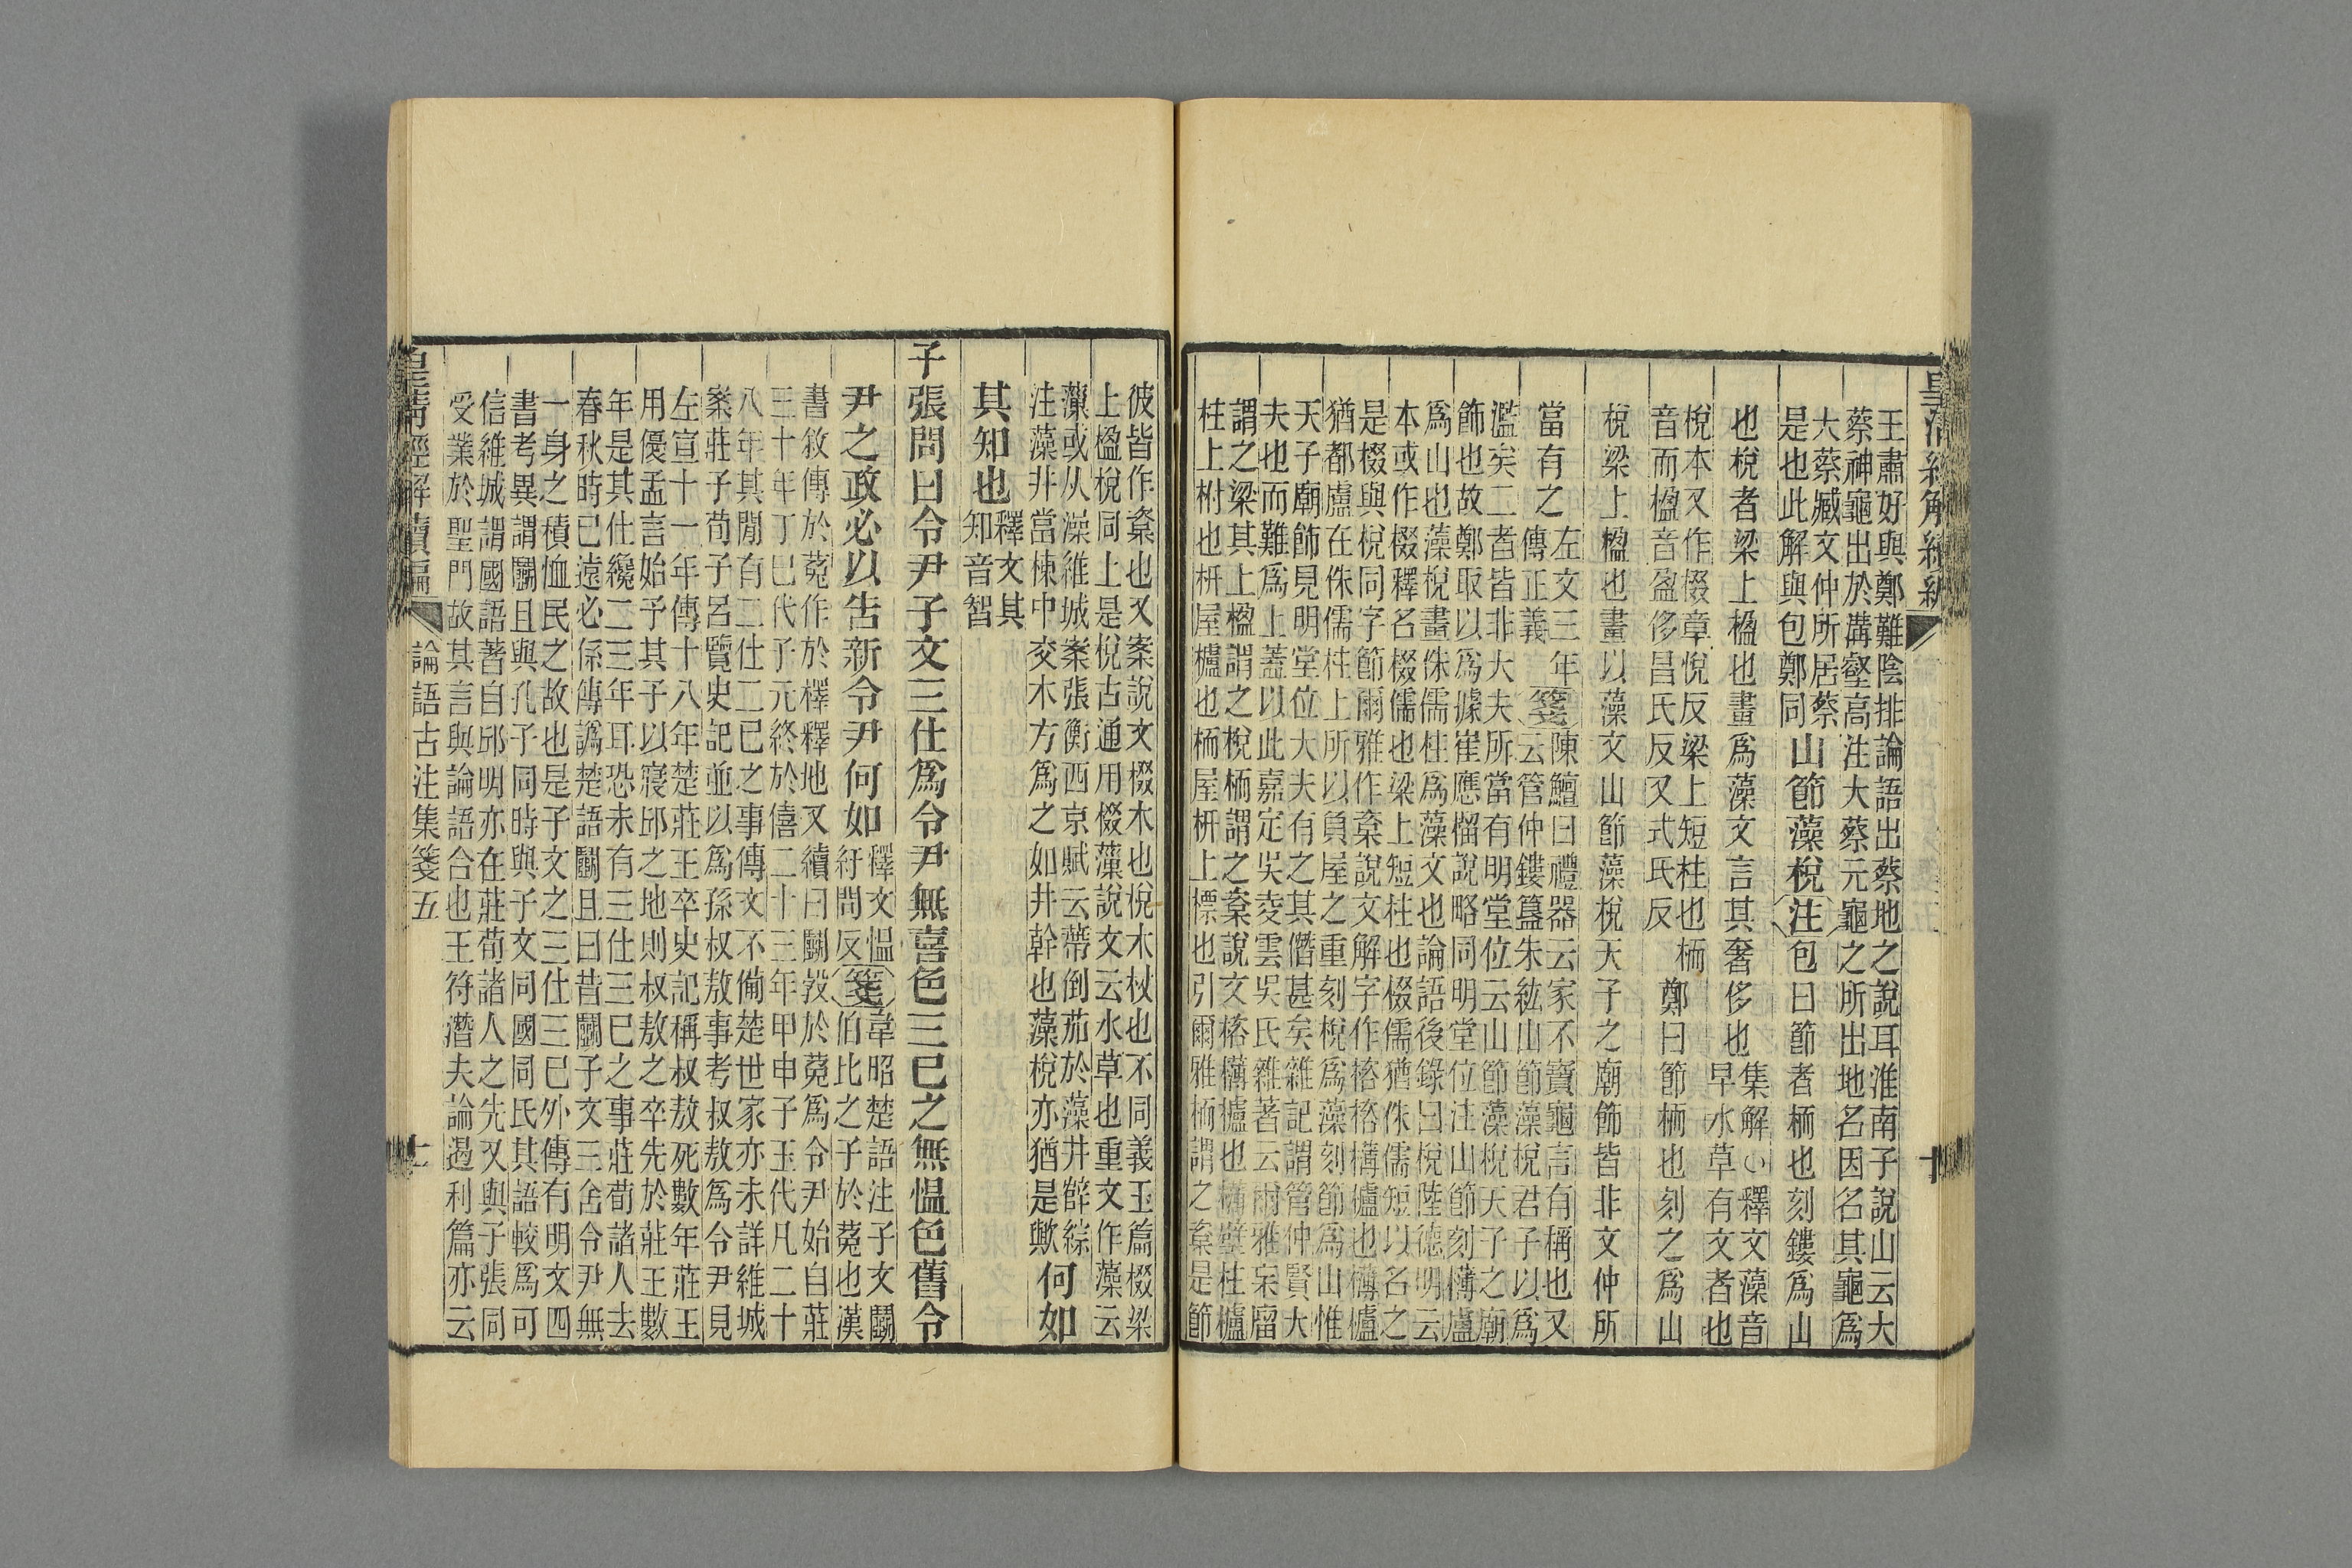 王肅好與鄭難陰排論語出蔡地之說耳淮南子說山云大
蔡神龜出於溝壑高注大蔡元龜之所出地名因名其龜爲
大蔡臧文仲所居蔡
是也此解與包鄭同
山節藻梲注包曰節者栭也刻鏤爲山
也梲者梁上楹也畫爲藻文言其奢侈也
集解○釋文藻音
早水草有文者也
梲本又作棳章悅反梁上短柱也栭
音而楹音盈侈昌氏反又式氏反
鄭曰節栭也刻之爲山
梲梁上楹也畫以藻文山節藻梲天子之廟飾皆非文仲所
當有之
左文三年
傳正義
箋
陳鱣曰禮器云家不寶龜言有稱也又
云管仲鏤簋朱紘山節藻梲君子以爲
濫矣二者皆非大夫所當有明堂位云山節藻梲天子之廟
飾也故鄭取以爲據崔應榴說略同明堂位注山節刻欂盧
爲山也藻梲畫侏儒柱爲藻文也論語後錄曰梲陸德明云
本或作棳釋名棳儒也梁上短柱也棳儒猶侏儒短以名之
是棳與梲同字節爾雅作楶說文解字作楁楁欂櫨也欂櫨
猶都盧在侏儒柱上所以負屋之重刻梲爲藻刻節爲山惟
天子廟飾見明堂位大夫有之其僭甚矣雜記謂管仲賢大
夫也而難爲上蓋以此嘉定吳夌雲吳氏雜著云爾雅杗廇
謂之梁其上楹謂之梲栭謂之楶說文楁欂櫨也欂壁柱櫨
柱上柎也枅屋櫨也栭屋枅上標也引爾雅栭謂之楶是節
彼皆作楶也又案說文棳木也梲木杖也不同義玉篇棳梁
上楹梲同上是梲古通用棳藻說文云水草也重文作藻云
薻或从澡維城案張衡西京賦云蔕倒茄於藻井薛綜
注藻井當棟中交木方爲之如井幹也藻梲亦猶是歟
何如
其知也
釋文其
知音智
子張問曰令尹子文三仕爲令尹無喜色三已之無慍色舊令
尹之政必以告新令尹何如
釋文慍
紆問反
箋
韋昭楚語注子文鬭
伯比之子於菟也漢
書敘傳於菟作於檡釋地又續曰鬭穀於菟爲令尹始自莊
三十年丁巳代子元終於僖二十三年甲申子玉代凡二十
八年其閒有二仕二已之事傳文不備楚世家亦未詳維城
案莊子荀子呂覽史記並以爲孫叔敖事考叔敖爲令尹見
左宣十一年傳十八年楚莊王卒史記稱叔敖死數年莊王
用優孟言始予其子以寢邱之地則叔敖之卒先於莊王數
年是其仕纔二三年耳恐未有三仕三巳之事莊荀諸人去
春秋時已遠必係傳譌楚語鬭且曰昔鬭子文三舍令尹無
一身之積恤民之故也是子文之三仕三巳外傳有明文四
書考異謂鬭且與孔子同時與子文同國同氏其語較爲可
信維城謂國語著自邱明亦在莊荀諸人之先又與子張同
受業於聖門故其言與論語合也王符潛夫論遏利篇亦云
皇清經解續編
論語古注集箋五